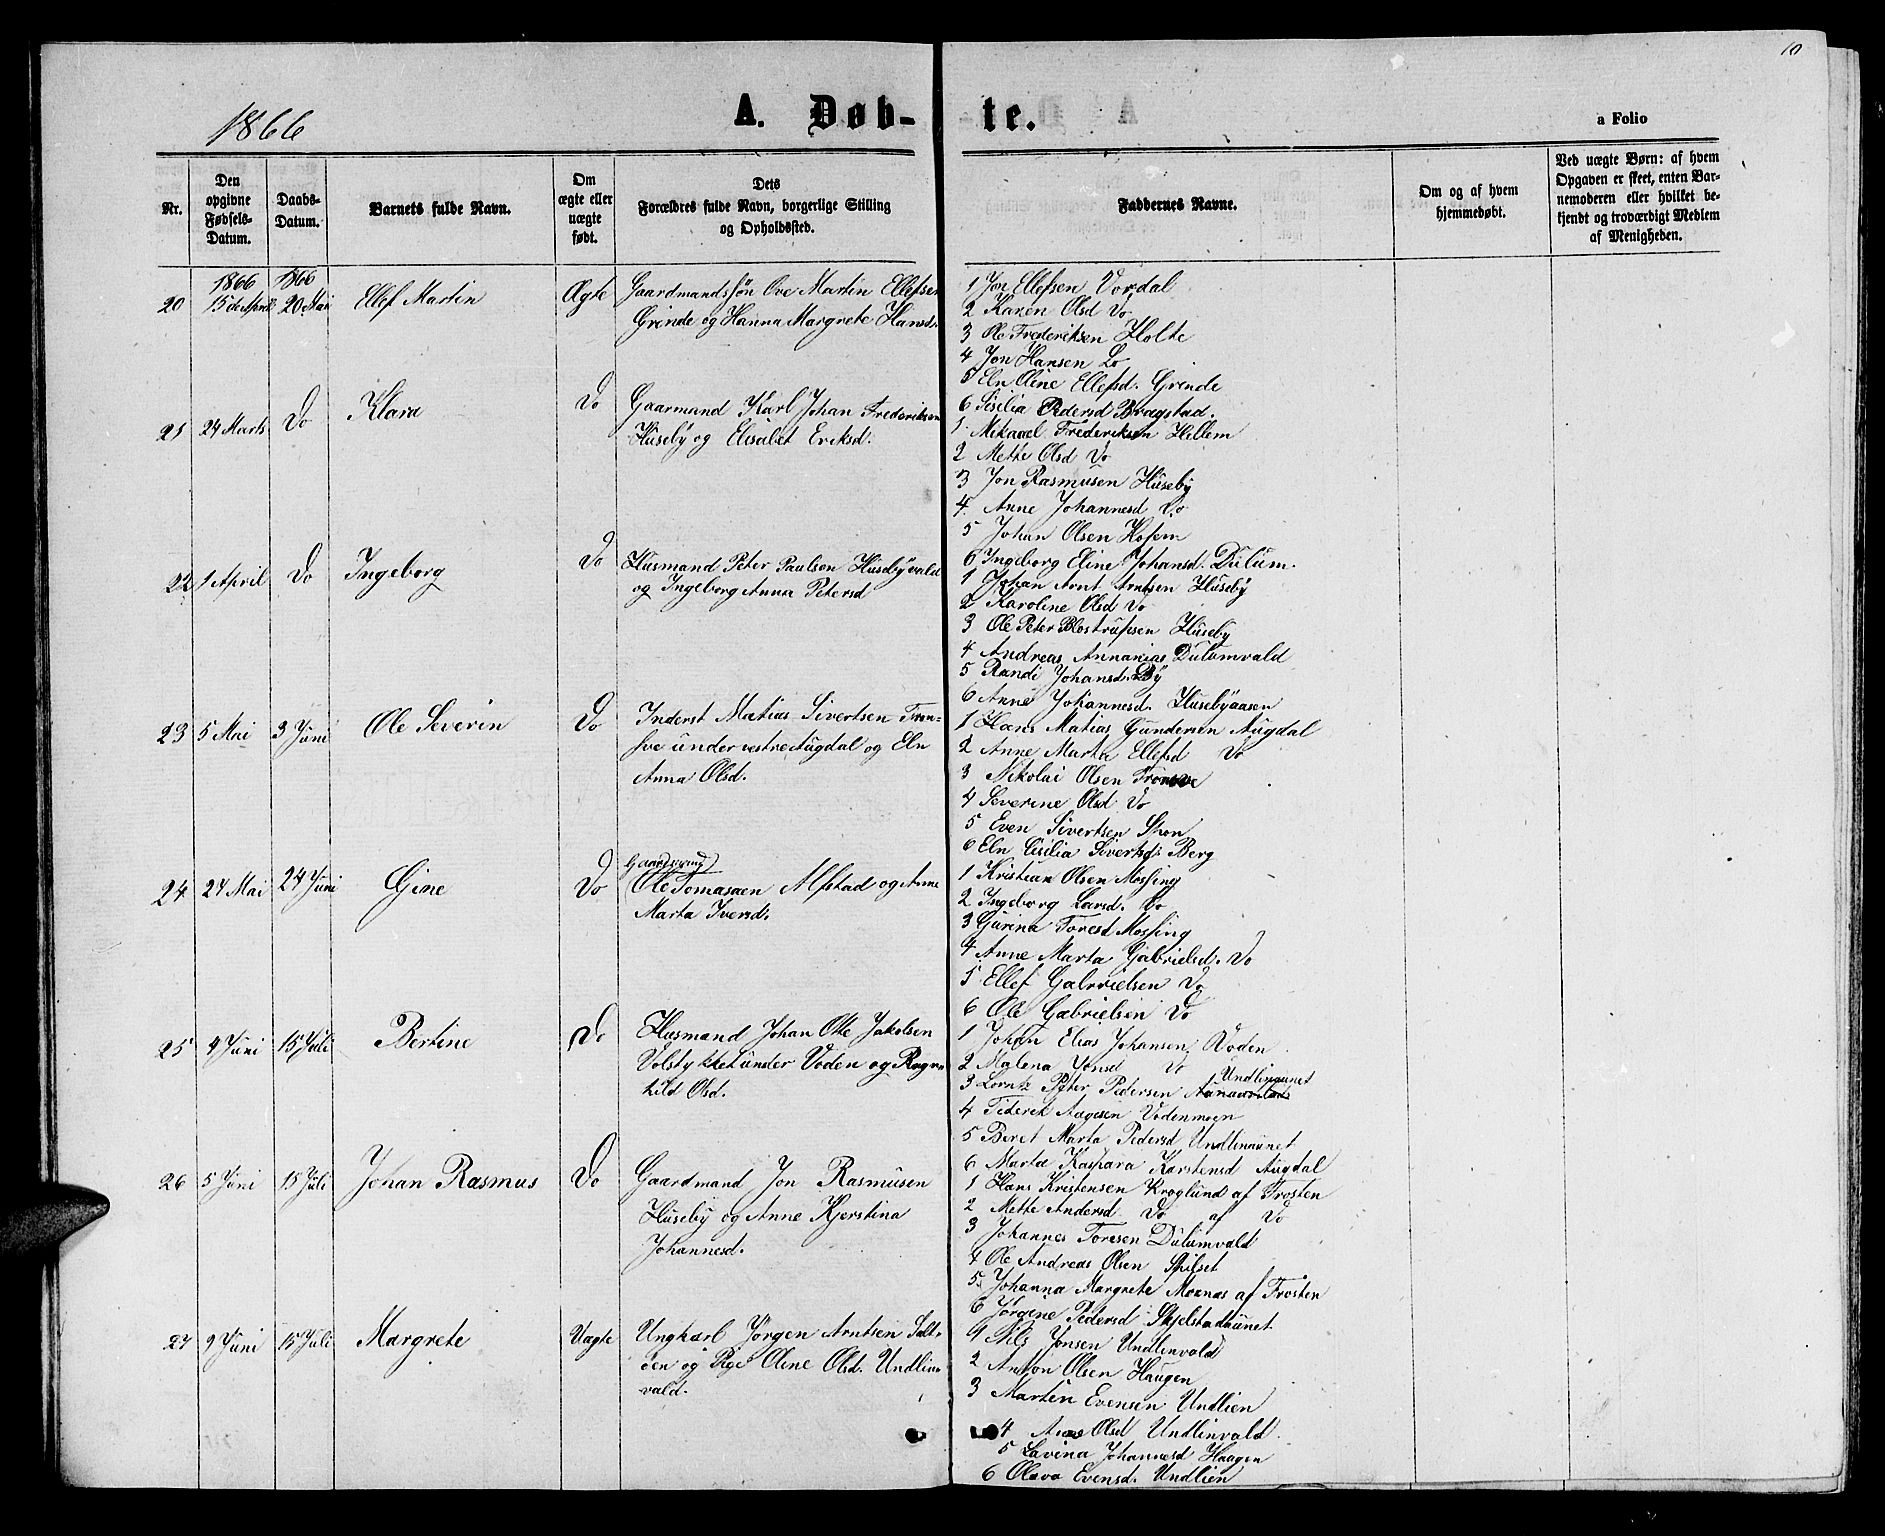 10
1866
A. Døb-
te.
a Folio
Nr.
Den opgivne Fødsels-Datum.
Daabs-Datum.
Barnets fulde Navn.
Om ægte eller uægte født.
Dets Forældres fulde Navn, borgerlige Stilling og Opholdssted.
Faddernes Navne.
Om og af hvem hjemmedøbt.
Ved uægte Børn: af hvem Opgaven er skeet, enten Barnemoderen eller hvilket bekjendt og troværdigt Medlem af Menigheden.
1866 1866
20 15de April 20 Mai Ellef Martin Ægte Gaardmandssøn Ove Martin Ellefsen
Grinde og Hanna Margrete Hansd.
1 Jon Ellefsen Vordal
2 Karen Olsd Do
3 Ole Frederiksen Holte
4 Jon Hansen Lo
5 Eln Oline Ellefsd. Grinde
6 Sisilia Pedersd Bragstad.
21 24 Marts Do Klara Do Gaarmand Karl Johan Frederiksen
Huseby og Elisabet Eriksd.
1 Mikael Frederiksen Hellem
2 Mette Olsd Do
3 Jon Rasmusen Huseby
4. Anne Johannesd Do
5 Johan Olsen Hofem
6 Ingeborg Eline Johansd. Dulum.
22 1 April Do Ingeborg Do Husmand Peter Paulsen Husebyvald
og Ingeborg Anna Petersd
1 Johan Arnt Arntsen Huseby
2 Karoline Olsd Do
3 Ole Peter Blostrupsen Huseby
4 Andreas Annanias Dulumvald
5 Randi Johansd. By
6 Anne Johannesd. Husebyaasen
23 5 Mai 3 Juni Ole Severin Do Inderst Matias Sivertsen Tron-
sve under vestre Augdal og Eln
Anna Olsd.
1 Hans Matias Gundersen Augdal
2 Anne Marta Ellefsd Do
3 Nikolai Olsen Tronsve
4 Severine Olsd Do
5 Even Sivertsen
6 Eln Cisilia Sivertsd. Berg
24 27 Mai 24 Juni Gine Do Gaardmand
Ole Tomasaen Alstad og Anne
Marta Iversd.
1 Kristian Olsen Mossing
2 Ingeborg Larsd. Do
3 Gurina Toresd Mossing
4 Anne Marta Gabrielsd. Do
5 Ellef Gabrielsen Do
6 Ole Gabrielsen Do
25 4 Juni 15 Juli Bertine Do Husmand Johan Otte Jakobsen
Volstykket under Voden og Ragn-
hild Olsd.
1 Johan Elias Johansen Voden
2 Malena Jonsd Do
Undlinaunet
3 Lornts Peter Pedersen
4 Tiderek Aagesen Vodenmoen
5 Beret Marta Pedersd Undlinaunet
6 Marta Kaspara Karstensd Augdal
26 5 Juni 15 Juli Johan Rasmus Do Gaardmand Jon Rasmusen
Huseby og Anne Kjerstina
Johannesd.
1 Hans Kristensen Kroglund af Frosten
2 Mette Andersd Do af Do
3 Johannes Toresen Dulumvald
4 Ole Andreas Olsen Spilset
5. Johanna Margrete Moenas af Frosten
6 Jørgine Pedersd Skjelstadaunet
27 9 Juni 15 Juli Margrete Uægte Ungkarl Jørgen Arntsen Salt-
øen og Pige Oline Olsd. Undlin-
vald.
1 Nils Jonsen Undlinvald
2 Anton Olsen Haugen
3 Martin Evensen Undlien
4 Ane Olsd Undlinvald.
5 Lavina Johannesd Haagen
6 Olava Evensd. Undlien